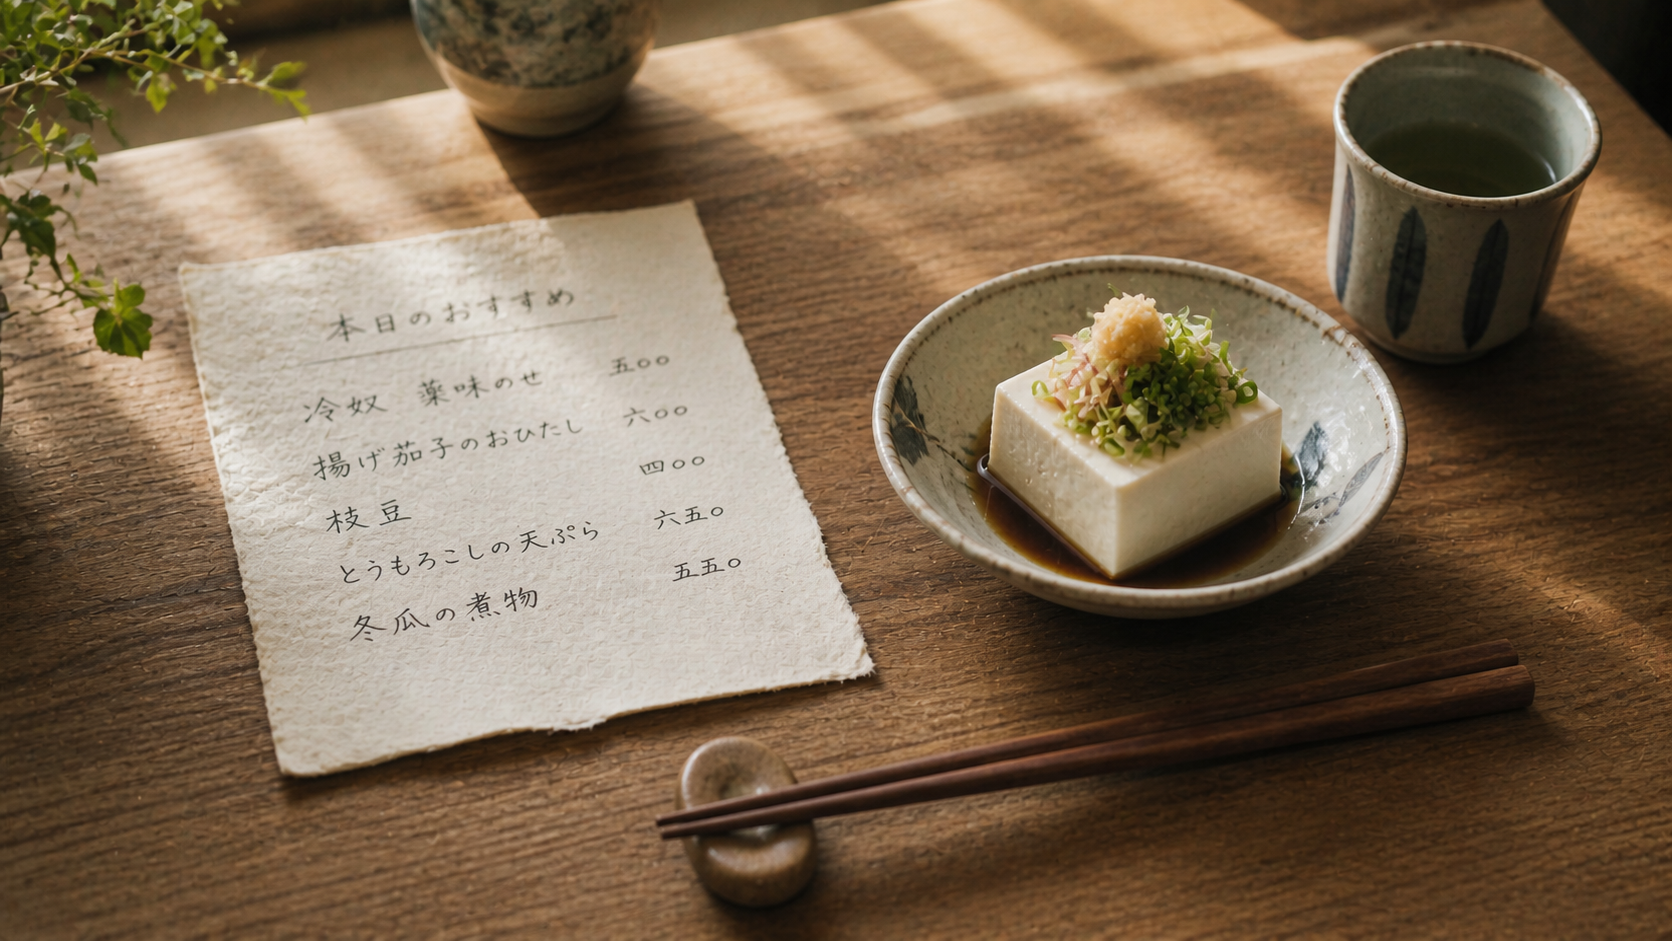 本日のおすすめ
冷奴 薬味のせ 五〇〇
揚げ茄子のおひたし 六〇〇
枝豆 四〇〇
とうもろこしの天ぷら 六五〇
冬瓜の煮物 五五〇